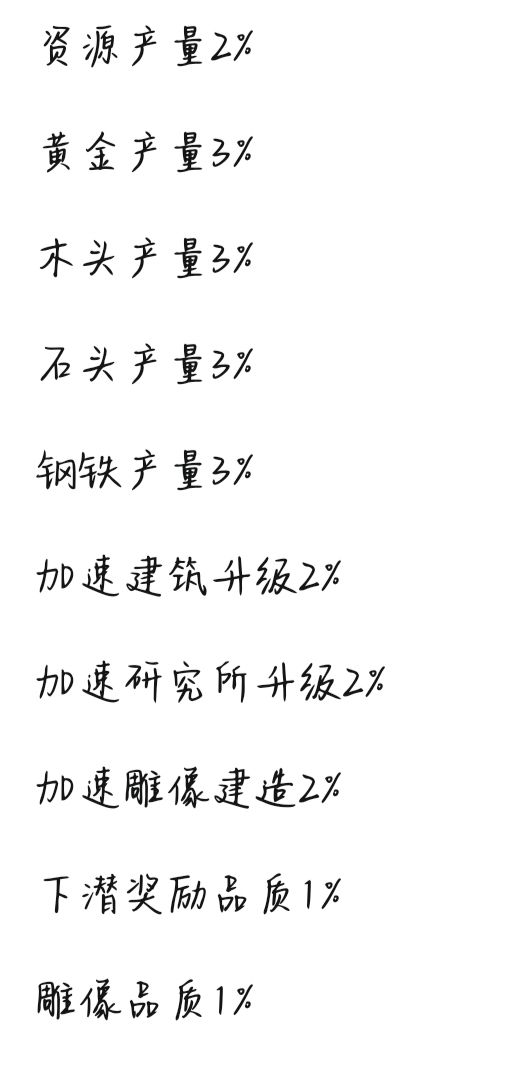 资源产量2%
黄金产量3%
木头产量3%
石头产量3%
钢铁产量3%
加速建筑升级2%
加速研究所升级2%
加速雕像建造2%
下潜奖励品质1%
雕像品质1%